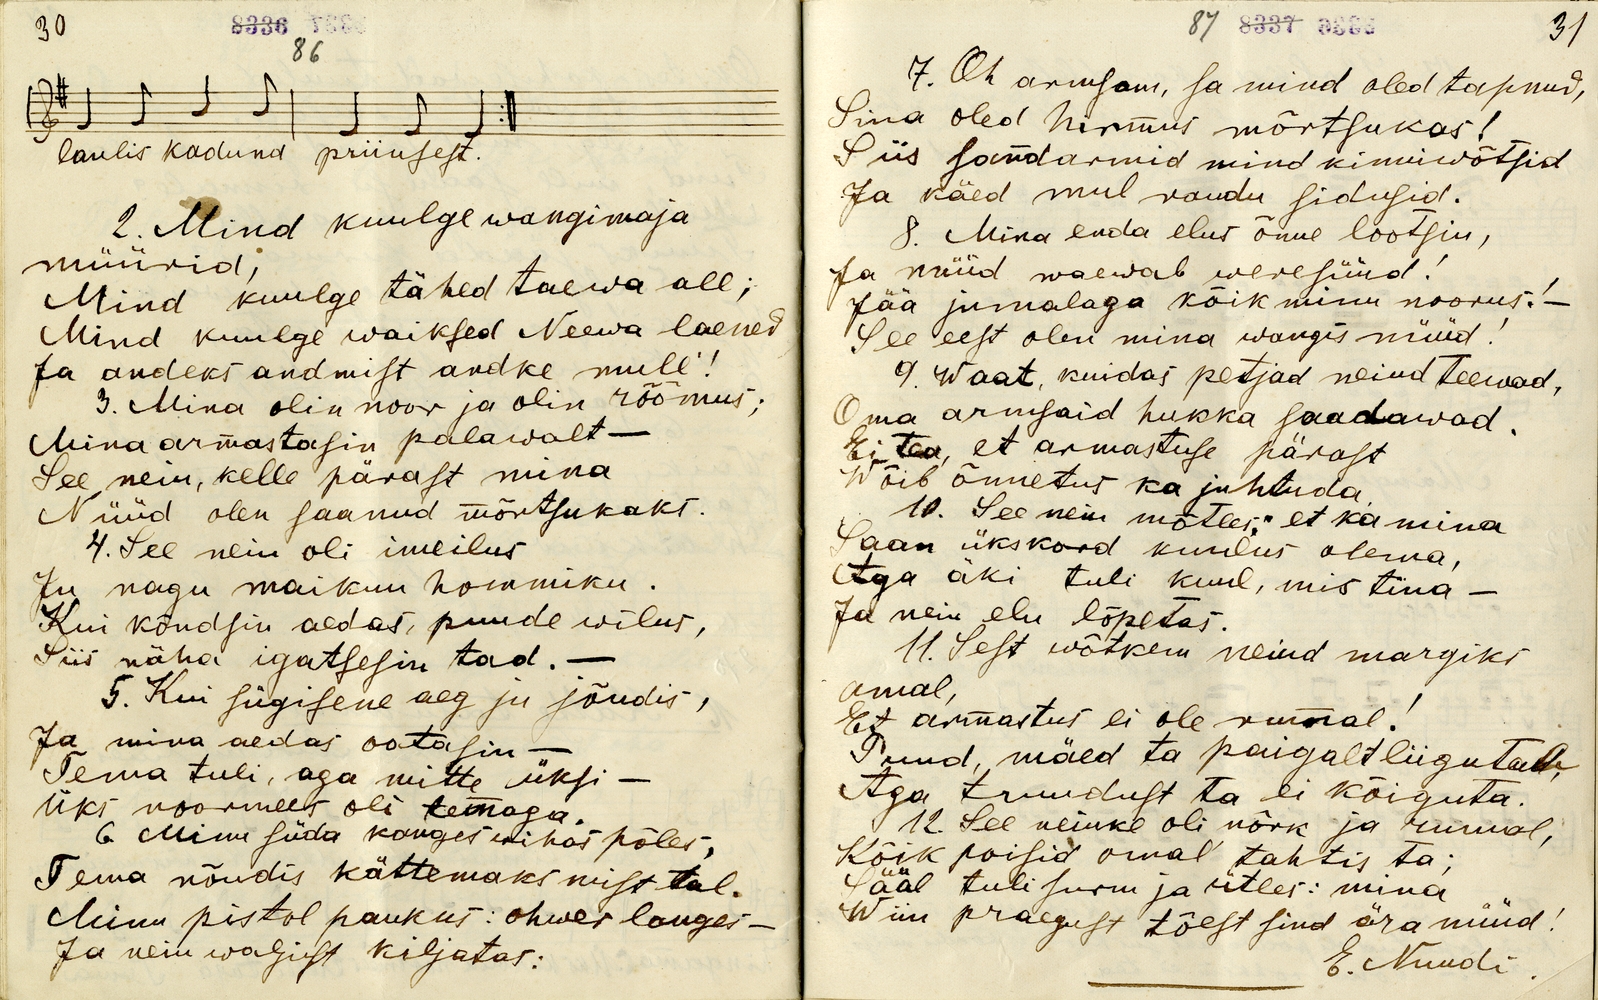 30
8336
86
laulis kadund priiusest.
2. Mind kuulge wangimaja
müürid,
Mind kuulge tähed taewa all;
Mind kuulge waiksed Neewa laened
Ja andeks andmist andke mulle!
3. Mina olin noor ja olin rõõmus;
Mina arm̄astasin palawalt —
See nein, kelle pärast mina
Nüüd olen saanud mõrtsukaks.
4. See nein oli imeilus
Ju nagu maikuu hommiku.
Kui kõndsin aedas, puude wilus,
Siis näha igatsesin tad. —
5. Kui sügisene aeg ju jõudis,
Ja mina aedas ootasin —
Tema tuli, aga mitte üksi —
Üks noormees oli tem̄aga.
6 Minu süda kanges wihas põles,
Tema nõudis kättemaks mist tal.
Minu pistol paukus: ohwer langes —
Ja nein waljust kiljatas:
87 8337
31
7. Oh armsam, sa mind oled tapnud,
Sina oled hirm̄us mõrtsukas!
Siis san̄darmid mind kinniwõtsid
Ja käed mul raudu sidusid.
8. Mina enda elus õnne lootsin,
Ja nüüd waewab weresüüd!
Jää jumalaga kõik minu noorus! —
See eest olen mina wangis nüüd!
9. Waat, kuidas petjad neiud teewad,
Oma armsaid hukka saadawad.
Ei tea, et armastuse pärast
Wõib õnnetus ka juhtuda.
10. See nein mõtles: et ka mina
Saan ükskord kuulus olema,
Aga äki tuli kuul, mis tina —
Ja nein elu lõpetas.
11. Sest wõtkem neiud margiks
omal,
Et arm̄astus ei ole rum̄al!
Puud, mäed ta paigalt liigutab,
Aga truudust ta ei kõiguta.
12. See neiuke oli nõrk ja rumal,
Kõik poisid omal tahtis ta;
Sääl tuli surm ja ütles: mina
Wiin praegust tõest sind ära nüüd!
E. Nuudi.